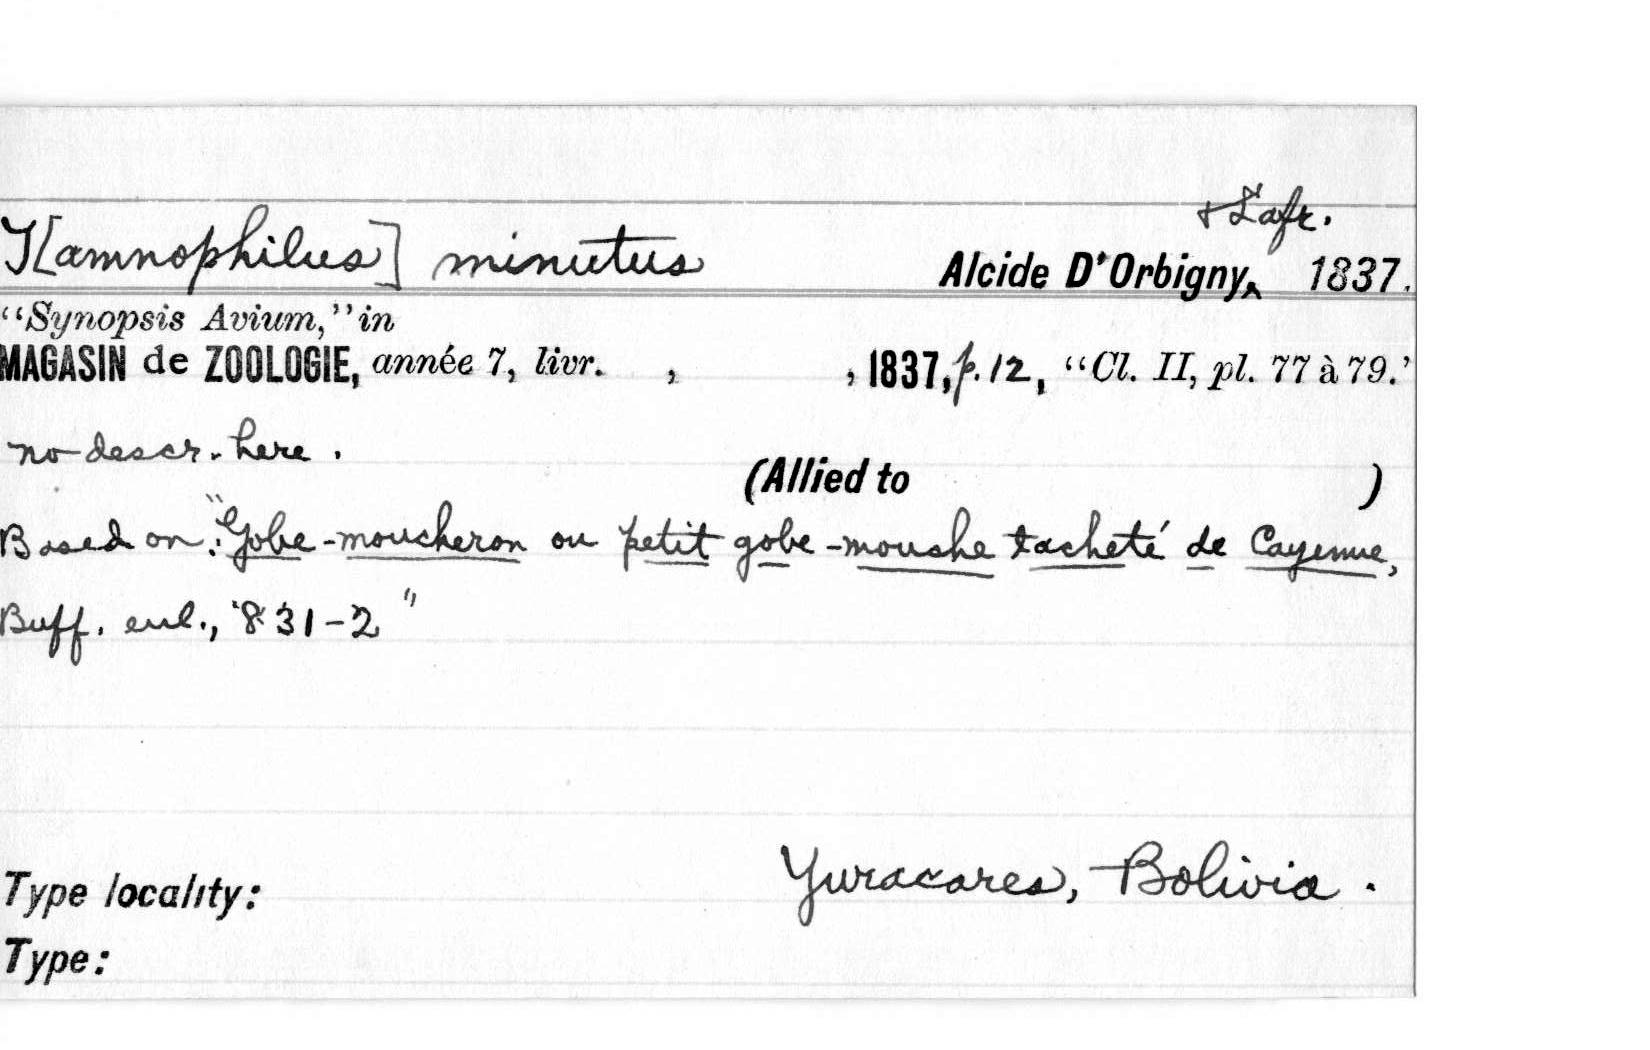 & Lafr.
T[amnophilus] minutus Alcide D'Orbigny, 1837.
“Synopsis Avium,” in
MAGASIN de ZOOLOGIE, année 7, livr. , , 1837, p. 12, “Cl. II, pl. 77 à 79.’
no descr. here .
(Allied to )
Based on: "Gobe-moucheron ou petit gobe-mouche tacheté de Cayenne,
Buff. enl., 831-2 "
Type locality: Yuracares, Bolivia .
Type: